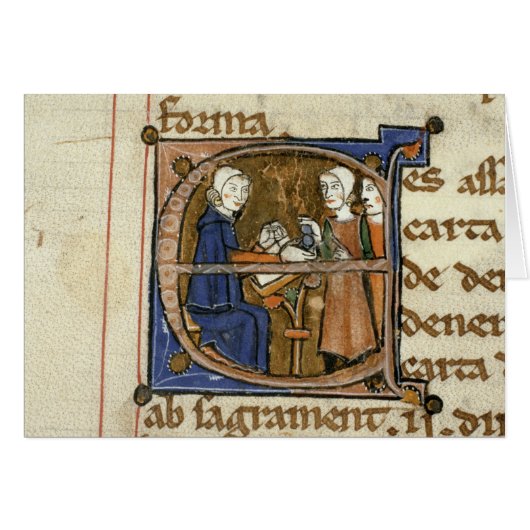 forma
es ass
carta
de den
dener
carta
ab sagrament .ij. di